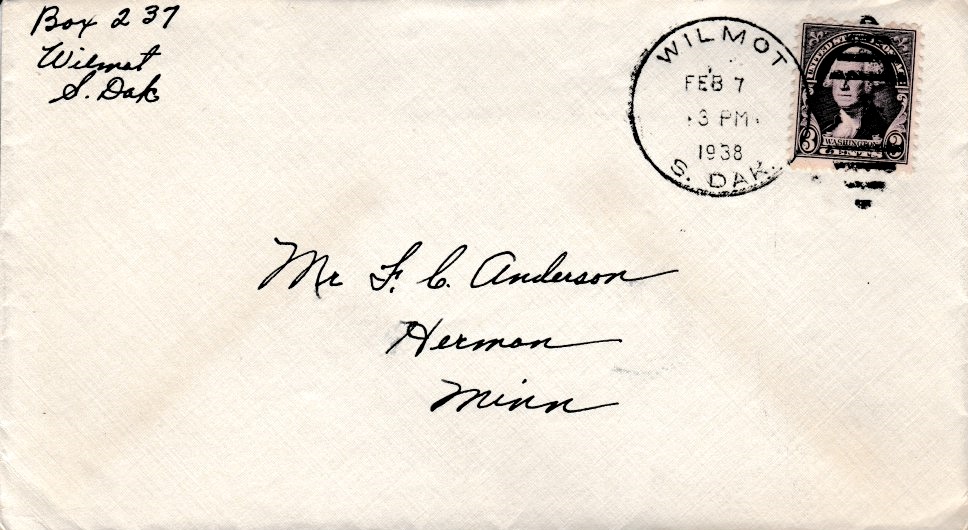 Box 237
Wilmot
S. Dak
WILMOT
FEB 7
3 PM
1938
S. DAK.
UNITED STATES POSTAGE
3 WASHINGTON 3
Mr F. C. Anderson
Herman
Minn